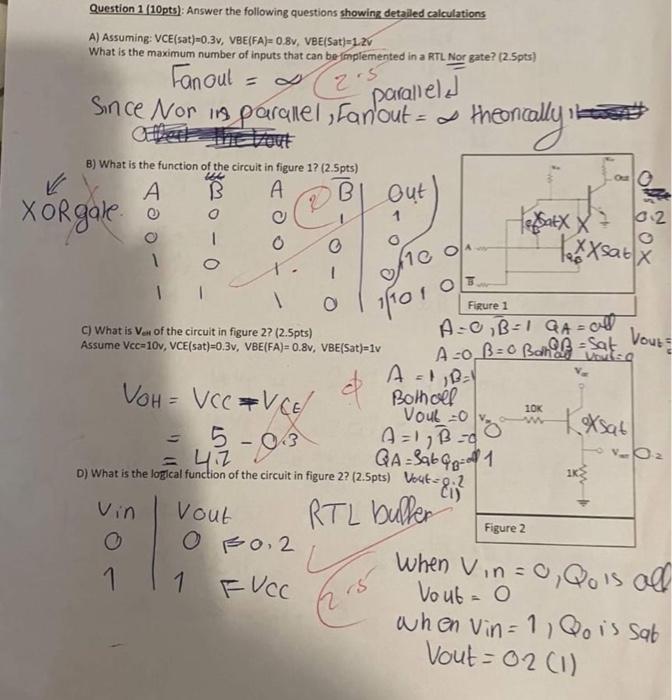 Question 1 (10pts): Answer the following questions showing detailed calculations
A) Assuming: VCE(sat)=0.3v, VBE(FA)= 0.8v, VBE(Sat)=1.2v
What is the maximum number of inputs that can be implemented in a RTL Nor gate? (2.5pts)
Fanout = ∞ 2.5
parallel
Since Nor in parallel, Fanout = ∞ theorically
B) What is the function of the circuit in figure 1? (2.5pts)
XOR gate.
A B A B̄ Out
0 0 0 1 1
0 1 0 0 0
1 0 1 1 0
1 1 1 0 1
Out
0
0.2
0
X
A
B̄
Figure 1
A=0, B̄=1 QA=off QB=Sat Vout=
A=0, B=0 Both off Vout=0
C) What is VOH of the circuit in figure 2? (2.5pts)
Assume Vcc=10v, VCE(sat)=0.3v, VBE(FA)= 0.8v, VBE(Sat)=1v
A=1, B=1
Both off
Vout=0
A=1, B̄=0
QA=Sat QB=off 1
Vout=0.2
(1)
VOH = VCC - VCE
= 5 - 0.3
= 4.7
Vcc
10K
Vin
0
sat
Vout
0.2
1K
Figure 2
D) What is the logical function of the circuit in figure 2? (2.5pts)
Vin Vout
0 0 = 0.2
1 1 = VCC
RTL buffer
2.5
When Vin = 0, Qo is off
Vout = 0
when Vin = 1, Qo is sat
Vout = 0.2 (1)